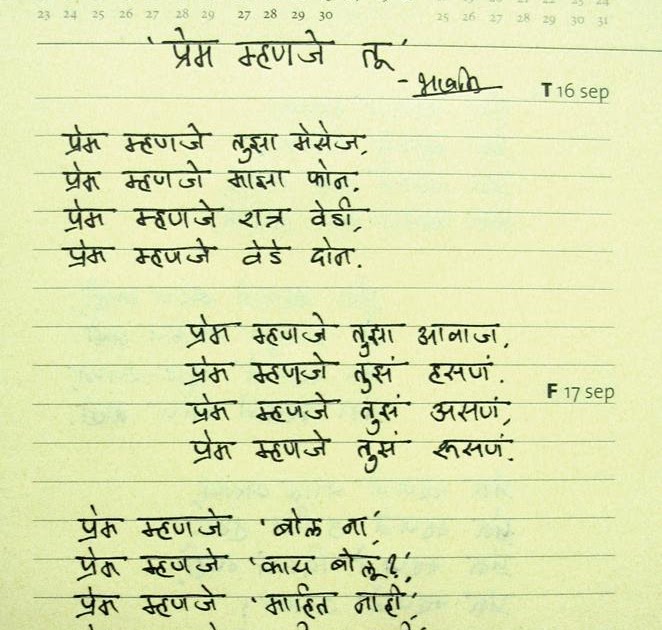 23 24 25 26 27 28 29 27 28 29 30 25 26 27 28 29 30 31
'प्रेम म्हणजे तू'
T 16 sep
प्रेम म्हणजे तुझा मेसेज,
प्रेम म्हणजे माझा फोन.
प्रेम म्हणजे रात्र वेडी,
प्रेम म्हणजे वेडे दोन.
प्रेम म्हणजे तुझा आवाज,
प्रेम म्हणजे तुझं हसणं.
F 17 sep
प्रेम म्हणजे तुझं असणं,
प्रेम म्हणजे तुझं रूसणं.
प्रेम म्हणजे 'बोल ना',
प्रेम म्हणजे 'काय बोलू?',
प्रेम म्हणजे 'माहित नाही',